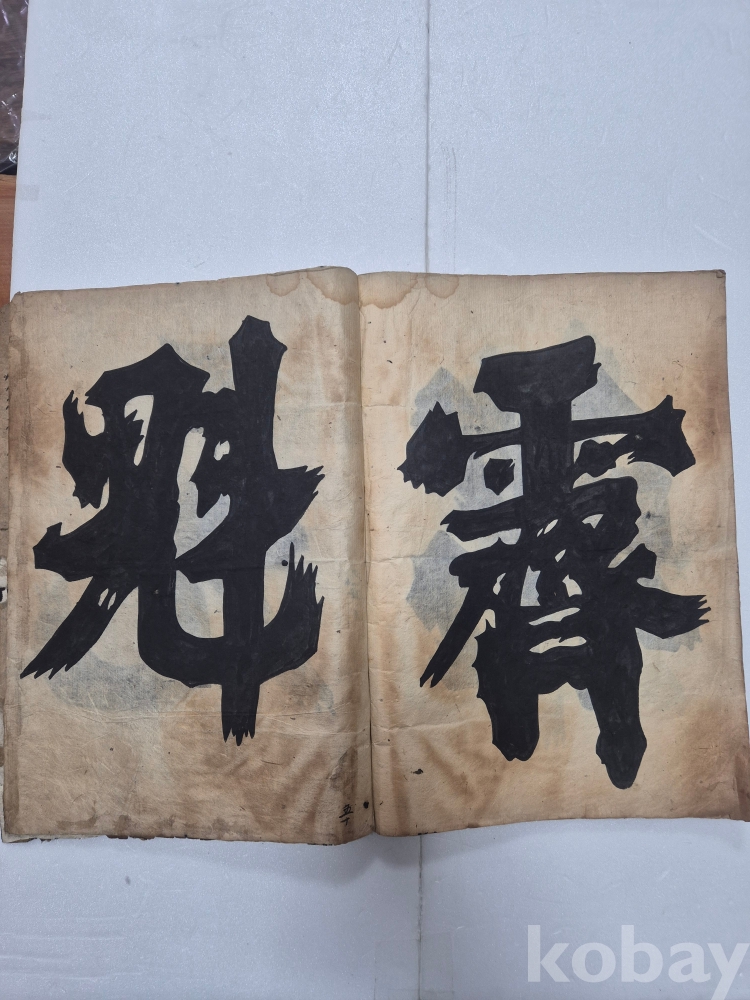 霽
魁
kobay